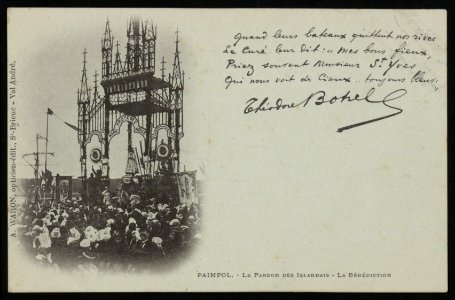 Quand leurs bateaux quittent nos rives
Le Curé leur dit : « Mes bons fieux,
Priez souvent Monsieur St Yves
Qui nous voit des Cieux.. toujours bleus „
Théodore Botrel
A. WARON, opticien-édit., St-Brieuc - Val André.
PAIMPOL. - LE PARDON DES ISLANDAIS - LA BÉNÉDICTION